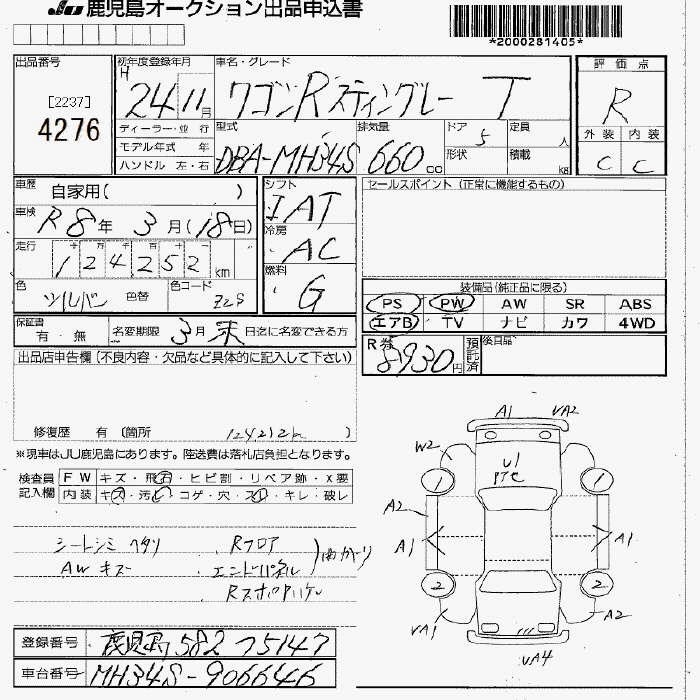 JU 鹿児島オークション出品申込書
*2000281405*
出品番号
[2237]
4276
初年度登録年月
H 24 11月
車名・グレード
ワゴンRスティングレー T
評価点
R
外装 内装
C C
ディーラー・並行
モデル年式 年
ハンドル 左・右
型式
DBA-MH34S
排気量
660cc
ドア
5
形状
定員
人
積載
kg
車歴
自家用( )
車検
R8年3月(18日)
走行
十 万 千 百 十 一
124252km
色
シルバー 色替
色コード
Z2S
シフト
IAT
冷房
AC
燃料
G
セールスポイント (正常に機能するもの)
装備品(純正品に限る)
PS PW AW SR ABS
エアB TV ナビ カワ 4WD
保証書
有・無
名変期限 3月末日迄に名変できる方
R券
8930円
預託済
後日品
出品店申告欄 (不良内容・欠品など具体的に記入して下さい)
修復歴 有 (箇所 )
※現車はJU鹿児島にあります。陸送費は落札店負担となります。
検査員記入欄
FW キズ・飛石・ヒビ割・リペア跡・X要
内装 キズ・汚レ・コゲ・穴・スレ・キレ・破レ
シートシミ ヘタリ
AWキズ
Rフロア
エンドパネル
A1 VA2
W2
U1
1 1
A2
A1 A1
2 2
VA1 A2
VA4
登録番号 鹿児島 582 つ 5147
車台番号 MH34S-9066646